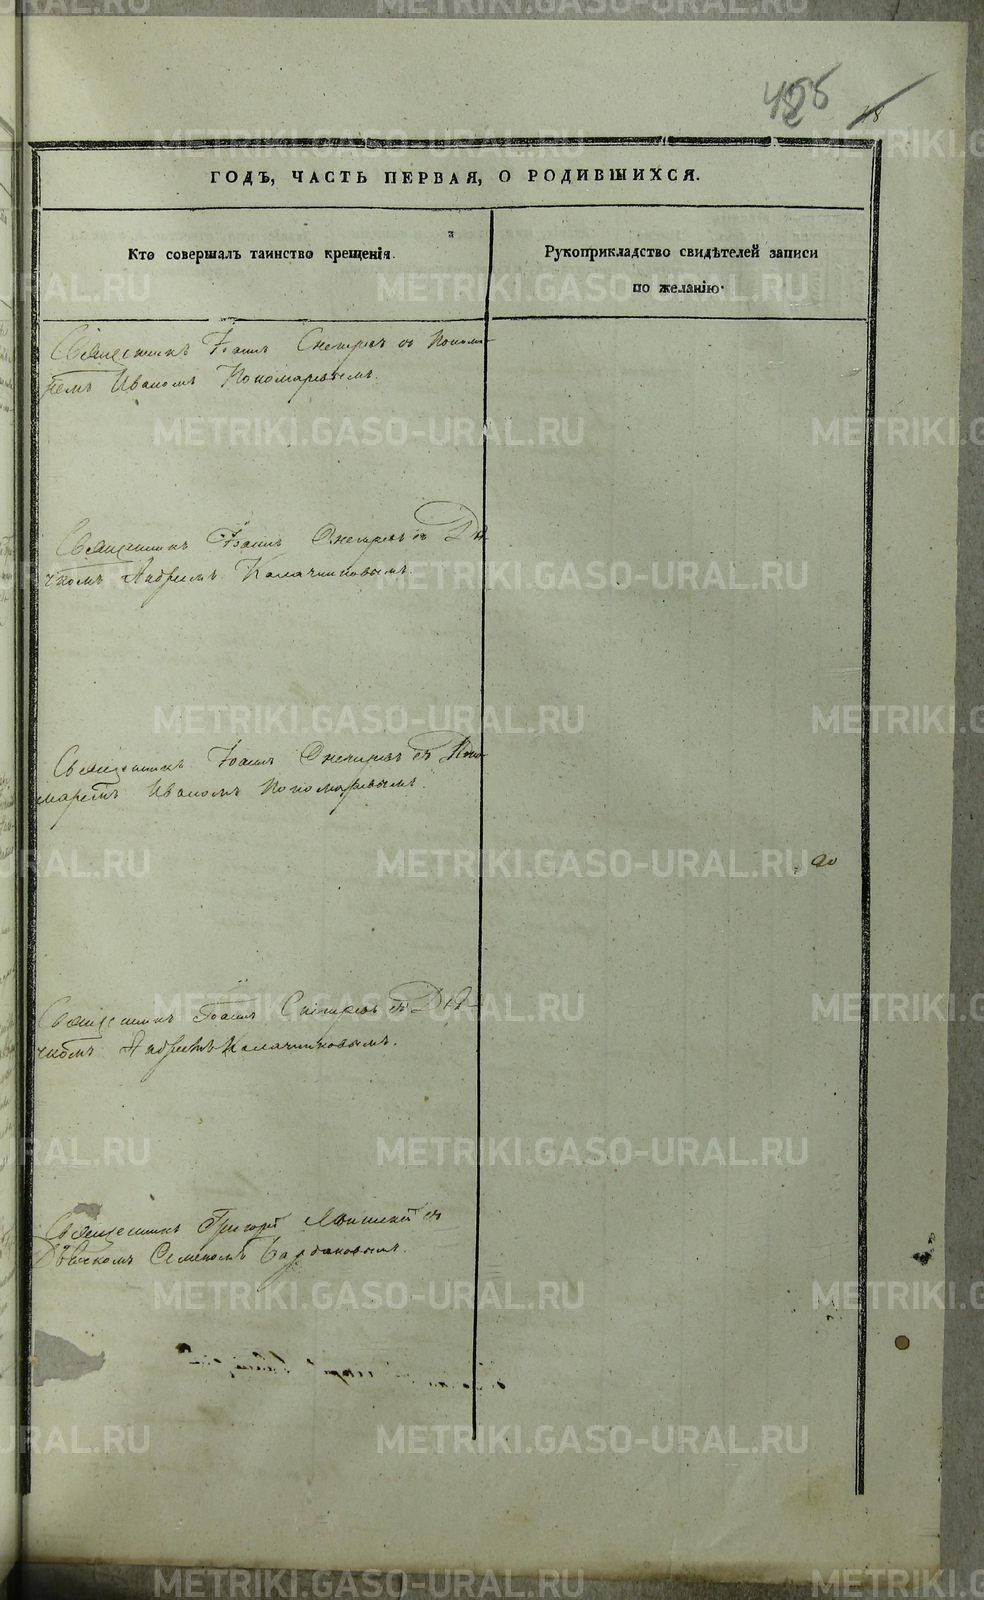 425
18
ГОДЪ, ЧАСТЬ ПЕРВАЯ, О РОДИВШИХСЯ.
Кто совершалъ таинство крещенія.
Рукоприкладство свидѣтелей записи
по желанію·
Священникъ Іоаннъ съ Поном-
Иваномъ Пономаревымъ.
Священникъ Іоаннъ съ Дья-
чкомъ Андреемъ Калачниковымъ.
Священникъ Іоаннъ съ Поно-
маремъ Иваномъ Пономаревымъ.
Священникъ Іоаннъ съ Дья-
чкомъ Андреемъ Калачниковымъ.
Священникъ Григорій съ
Дьячкомъ Семеномъ
METRIKI.GASO-URAL.RU